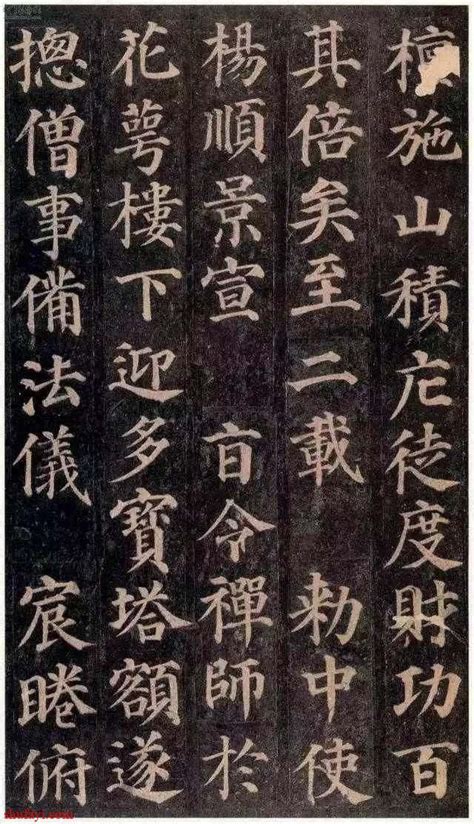 檀施山積庀徒度財功百
其倍矣至二載 勑中使
楊順景宣 㫖令禪師於
花萼樓下迎多寶塔額遂
揔僧事備法儀 宸睠俯